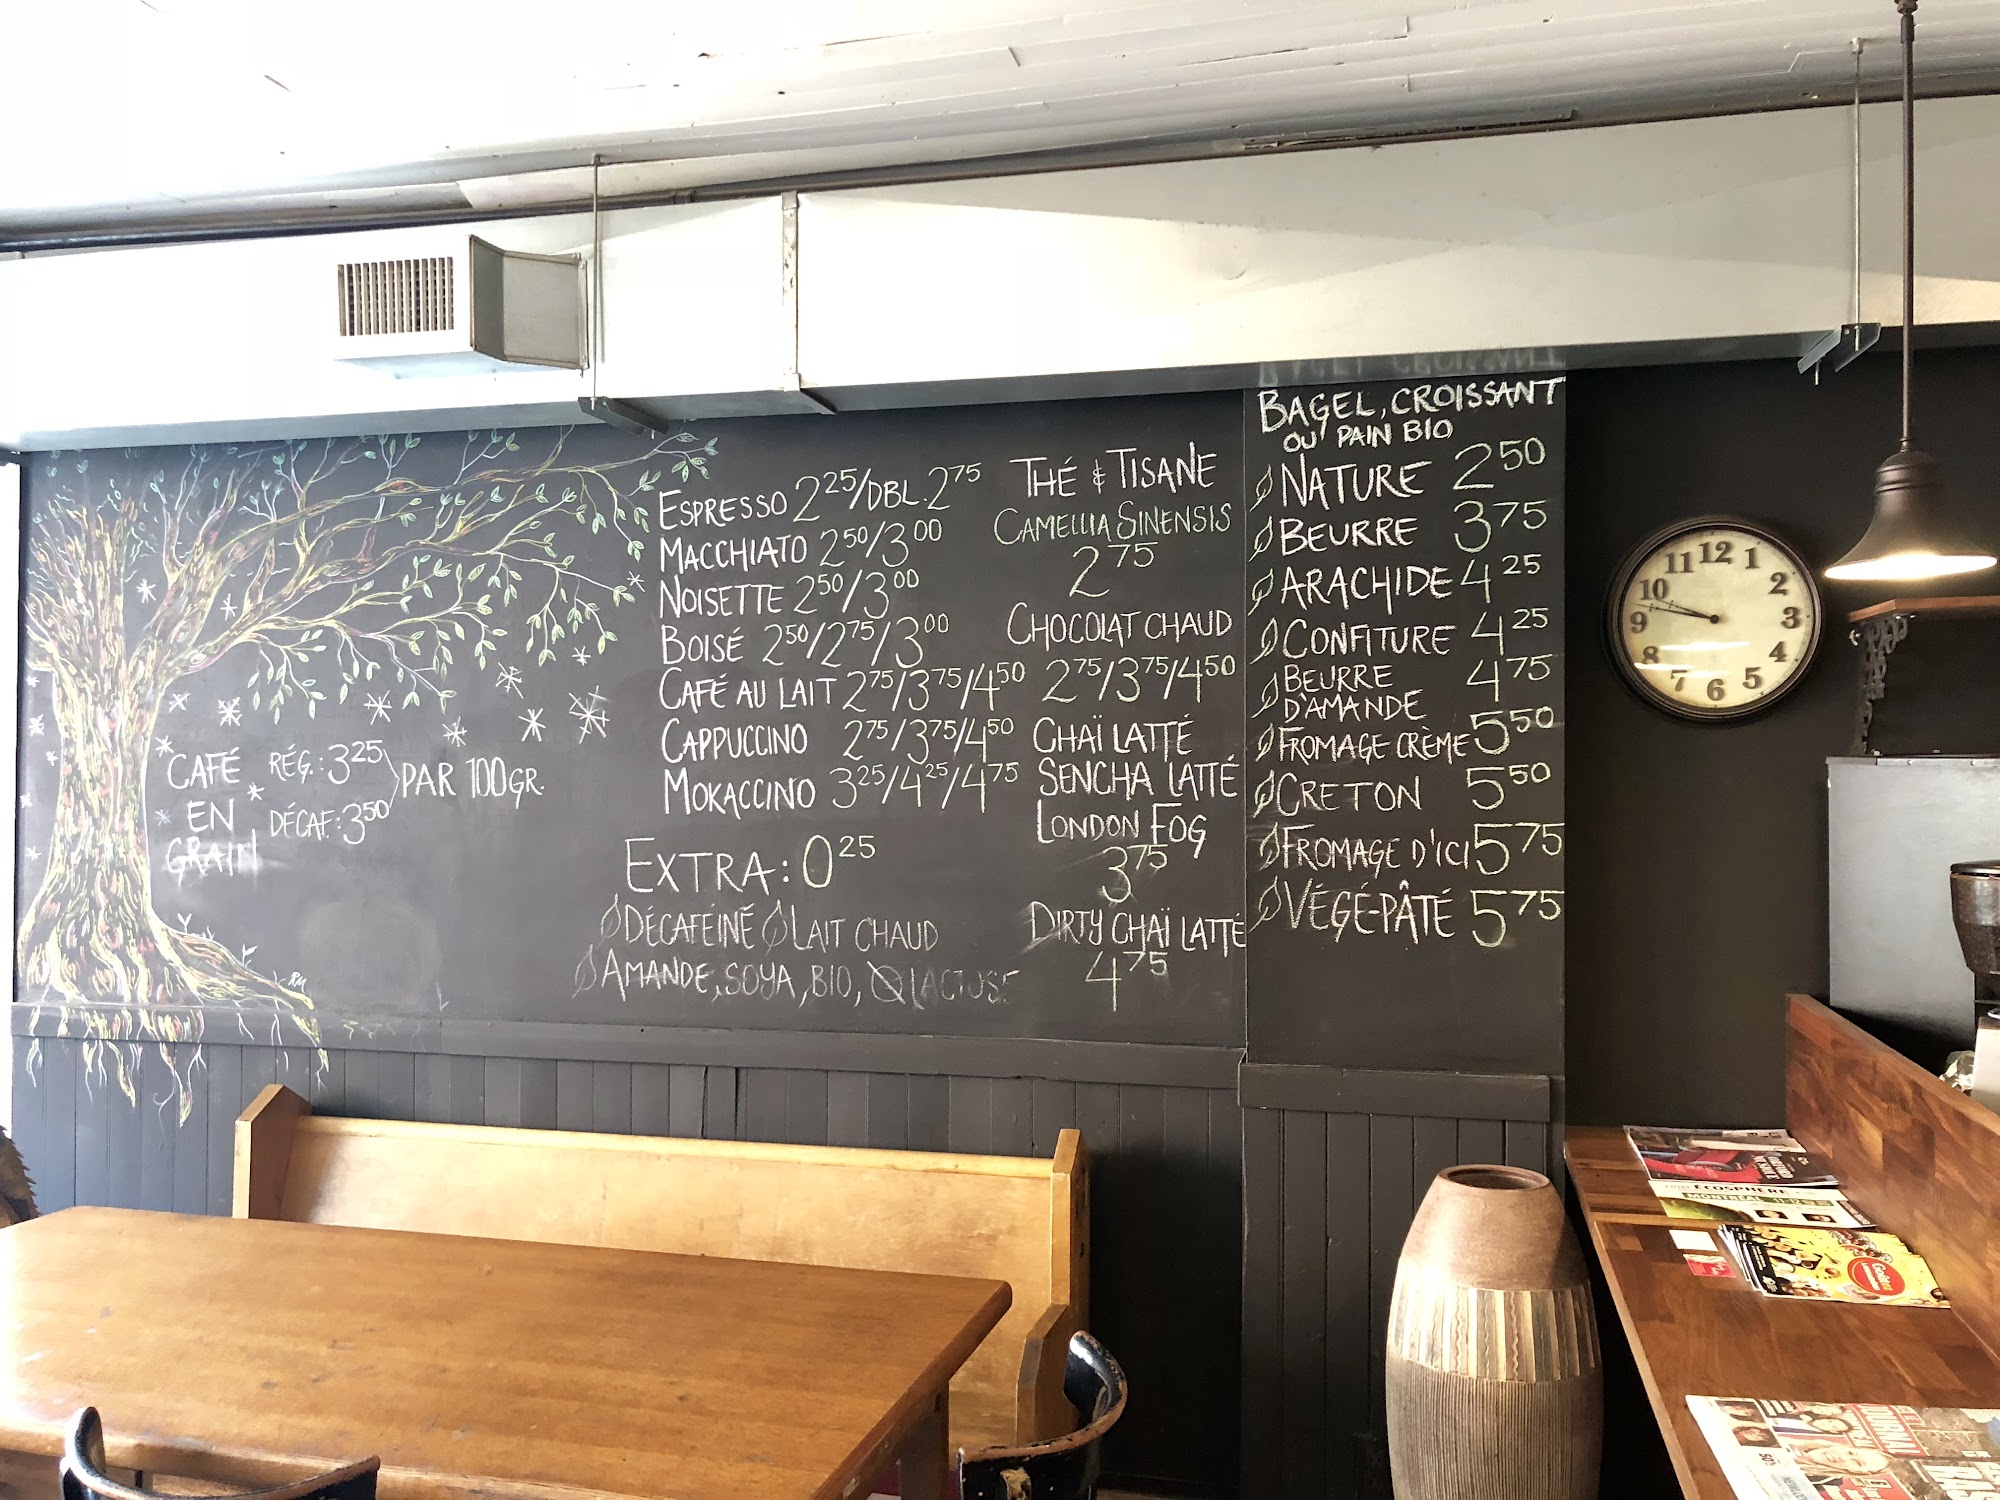 CAFÉ
EN
GRAIN
RÉG.: 3.25
DÉCAF.: 3.50
PAR 100GR.
RM
ESPRESSO 2.25/DBL. 2.75
MACCHIATO 2.50/3.00
NOISETTE 2.50/3.00
BOISÉ 2.50/2.75/3.00
CAFÉ AU LAIT 2.75/3.75/4.50
CAPPUCCINO 2.75/3.75/4.50
MOKACCINO 3.25/4.25/4.75
EXTRA: 0.25
DÉCAFÉINÉ LAIT CHAUD
AMANDE, SOYA, BIO, LACTOSE
THÉ & TISANE
CAMELLIA SINENSIS
2.75
CHOCOLAT CHAUD
2.75/3.75/4.50
CHAÏ LATTÉ
SENCHA LATTÉ
LONDON FOG
3.75
DIRTY CHAÏ LATTÉ
4.75
BAGEL, CROISSANT
OU PAIN BIO
NATURE 2.50
BEURRE 3.75
ARACHIDE 4.25
CONFITURE 4.25
BEURRE
D'AMANDE 4.75
FROMAGE CRÈME 5.50
CRETON 5.50
FROMAGE D'ICI 5.75
VÉGÉ-PÂTÉ 5.75
12
1
2
3
4
5
6
7
8
9
10
11
ÉCOSPHÈRE
MONTRÉAL
JOURNAL